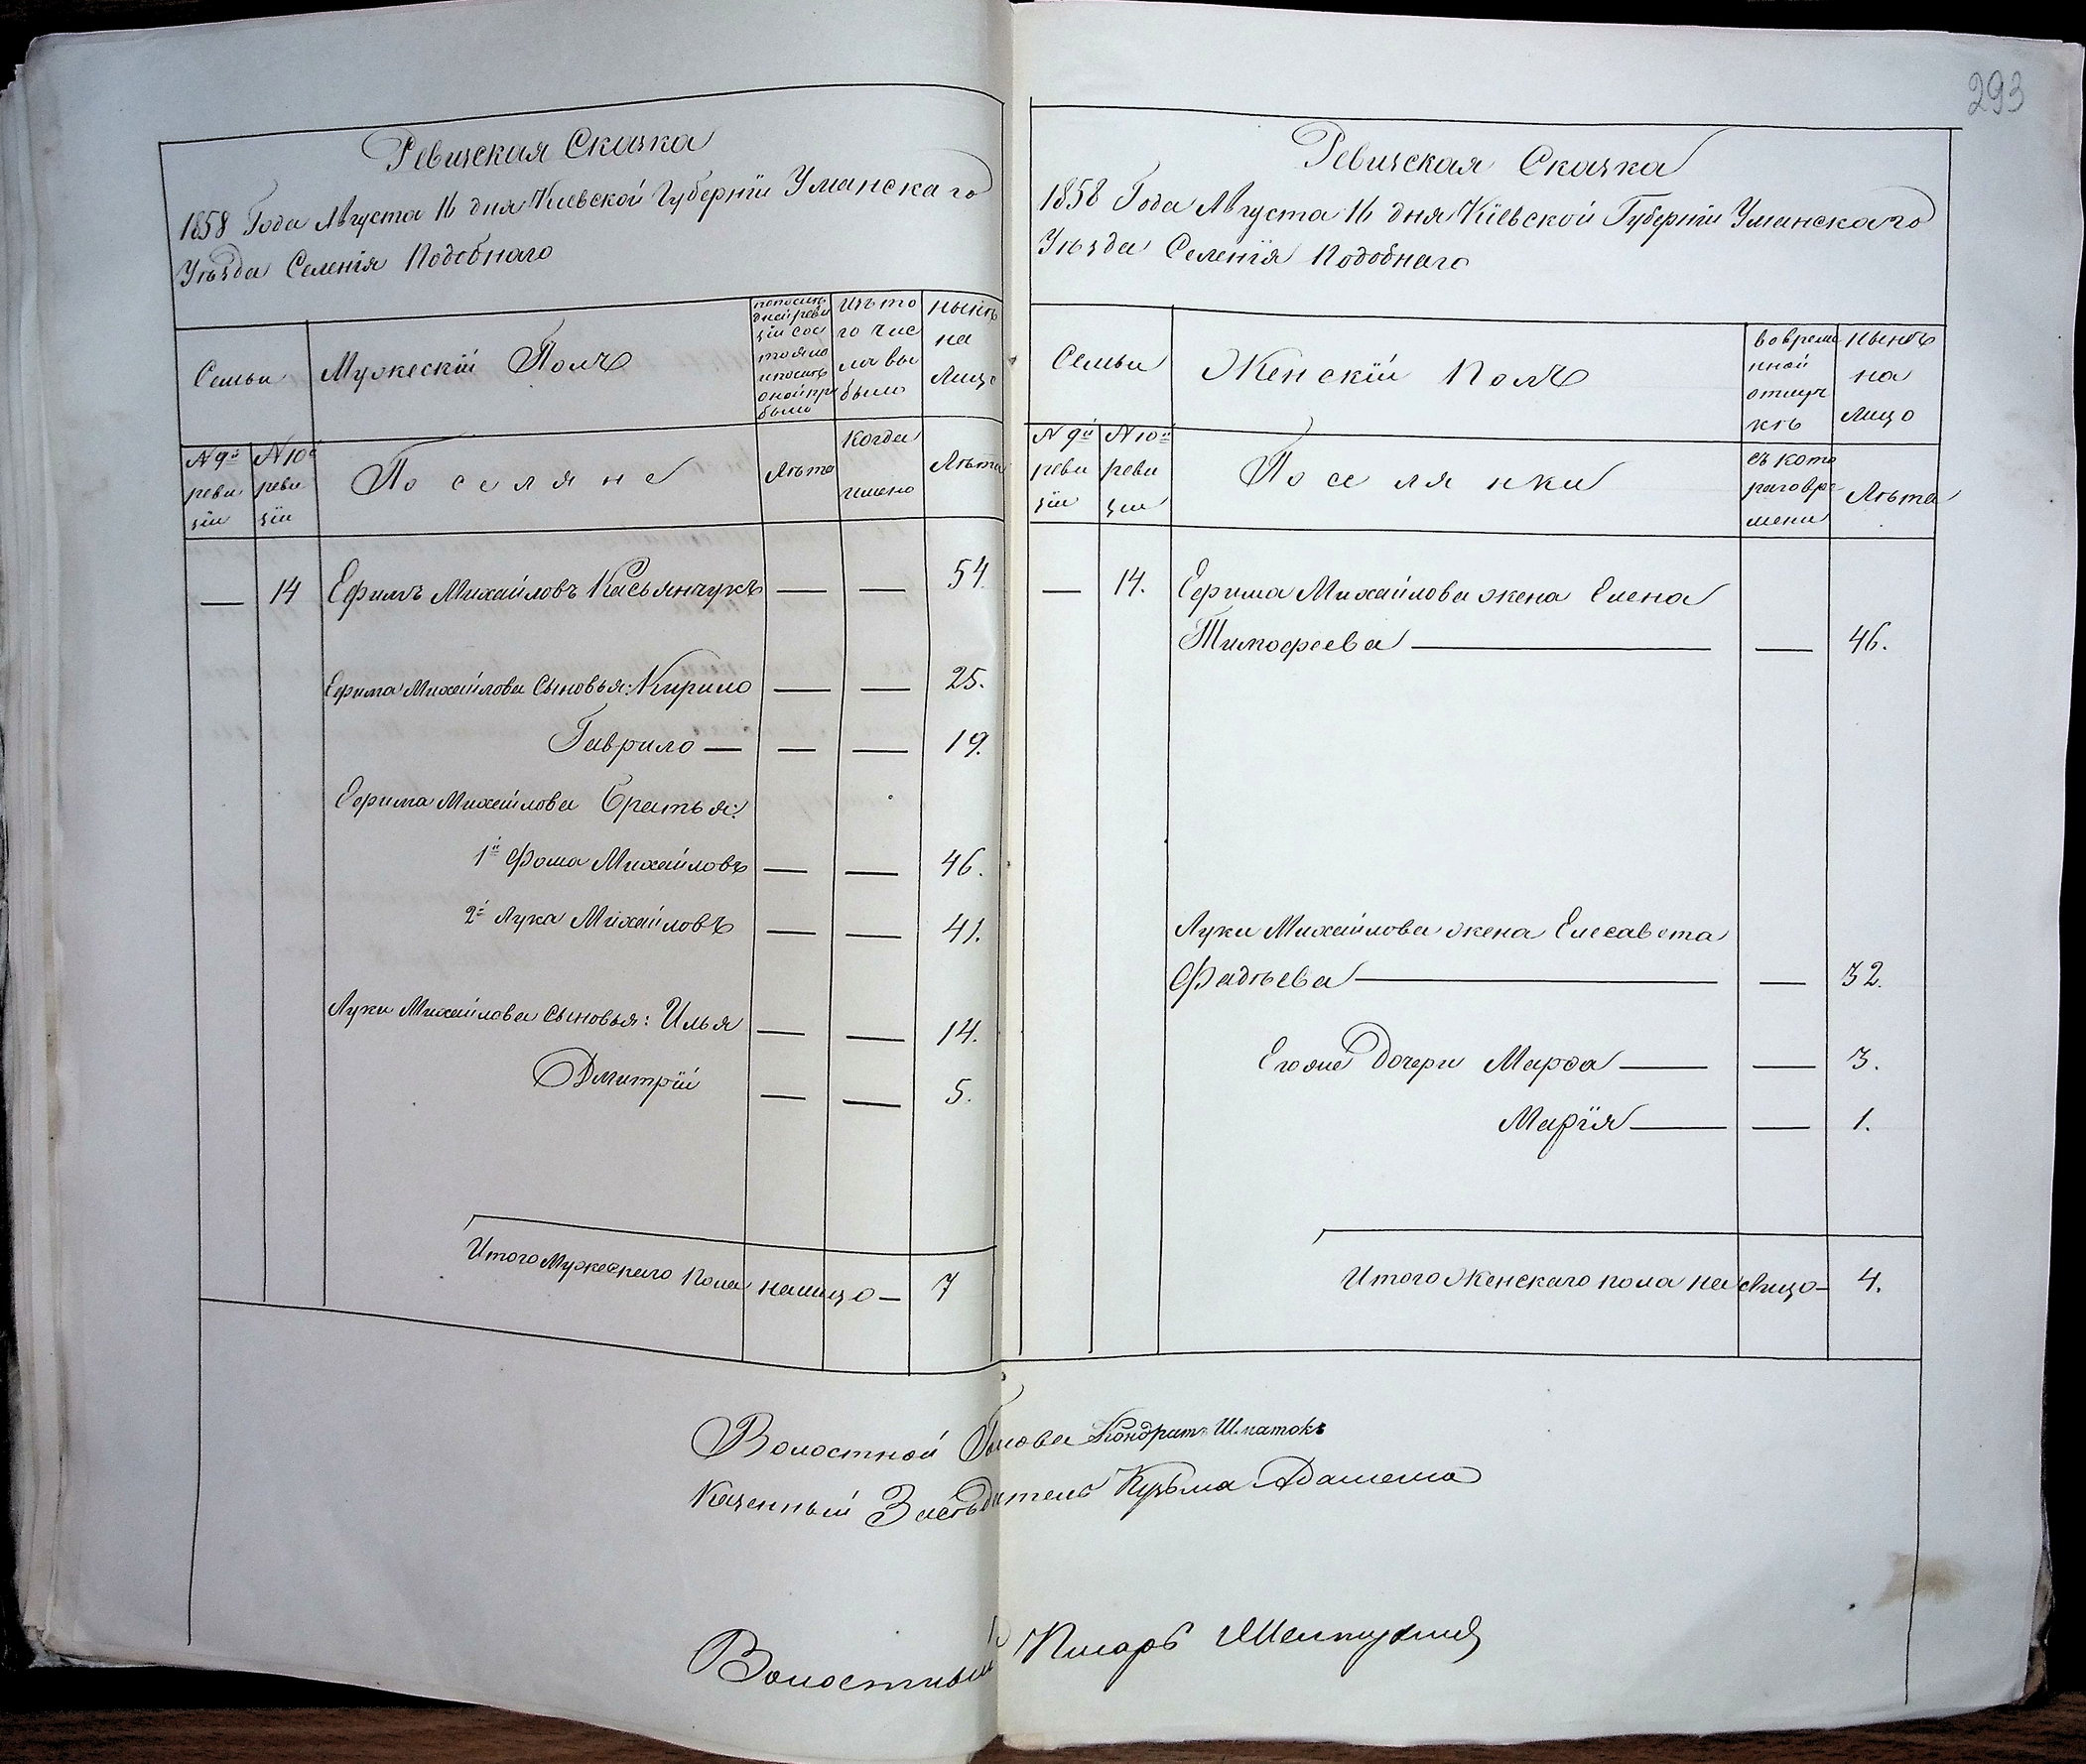 293
Ревизская Сказка
1858 Года Августа 16 дня Киевской Губернїи Уманскаго
Уѣзда Селенїя Подобнаго
Семьи
Мужескїй Полъ
по послѣ
дней реви
зїи сос
тояло
и послѣ
оной при
было
Изъ то
го чис
ла вы
было
нынѣ
на
Лицо
№ 9й
реви
зїи
№ 10й
реви
зїи
Поселяне
Лѣта
Когда
именно
Лѣта
— 14 Ефимъ Михайловъ Касьянчукъ — — 54.
Ефима Михайлова Сыновья: Кирило — — 25.
Гаврило — — — 19.
Ефима Михайлова Братья:
1й Фома Михайловъ — — 46.
2й Лука Михайловъ — — 41.
Луки Михайлова Сыновья: Илья — — 14.
Дмитрїй — — 5.
Итого Мужескаго Пола налицо — 7
Ревизская Сказка
1858 Года Августа 16 дня Кїевской Губернїи Уманскаго
Уѣзда Селенїя Подобнаго
Семьи
Женскїй Полъ
во време
нной
отлуч
кѣ
нынѣ
на
лицо
№ 9й
реви
зїи
№ 10й
реви
зїи
Поселянки
съ кото
раго вре
мени
Лѣта
— 14. Ефима Михайлова жена Елена
Тимофеева — — 46.
Луки Михайлова жена Елесавета
Фадѣева — — 32.
Его же Дочери Марфа — — 3.
Марїя — — 1.
Итого Женскаго пола на лицо — 4.
Волостной Голова Кондратъ Шматокъ
Казенный Засѣдатель Кузьма
Волостный Писарь